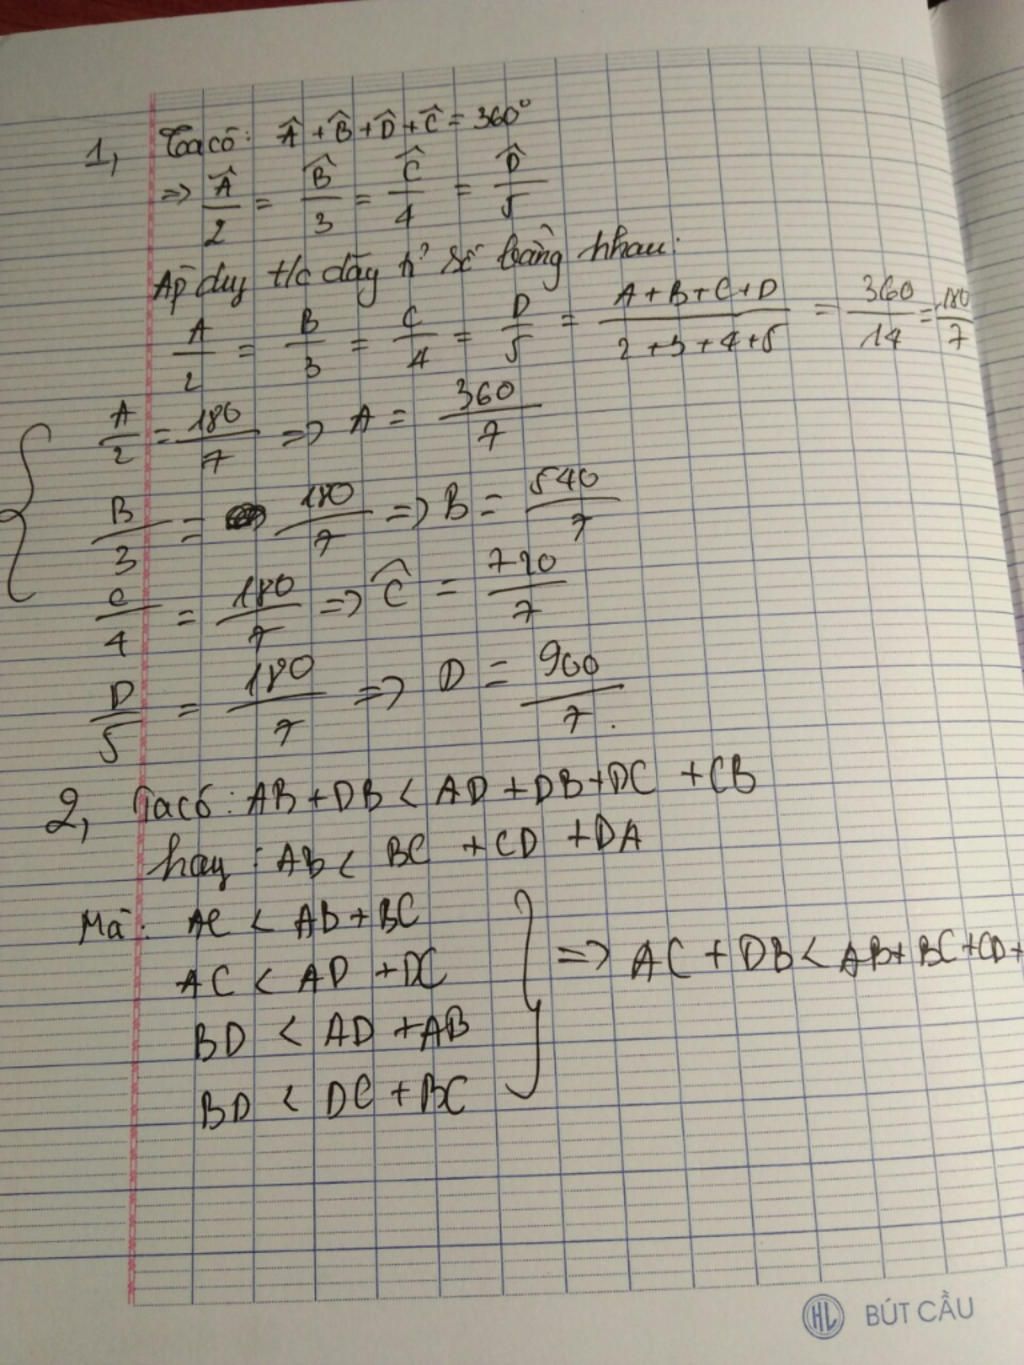 1, Ta có: Â + B̂ + D̂ + Ĉ = 360°
=> Â/2 = B̂/3 = Ĉ/4 = D̂/5
Áp dụng t/c dãy tỉ số bằng nhau:
A/2 = B/3 = C/4 = D/5 = A+B+C+D / 2+3+4+5 = 360/14 = 180/7
A/2 = 180/7 => A = 360/7
B/3 = 180/7 => B = 540/7
C/4 = 180/7 => Ĉ = 720/7
D/5 = 180/7 => D = 900/7.
2, Ta có: AB + DB < AD + DB + DC + CB
hay: AB < BC + CD + DA
Mà: AC < AB + BC
AC < AD + DC
BD < AD + AB
BD < DC + BC
=> AC + DB < AB + BC + CD +
HL BÚT CẦU